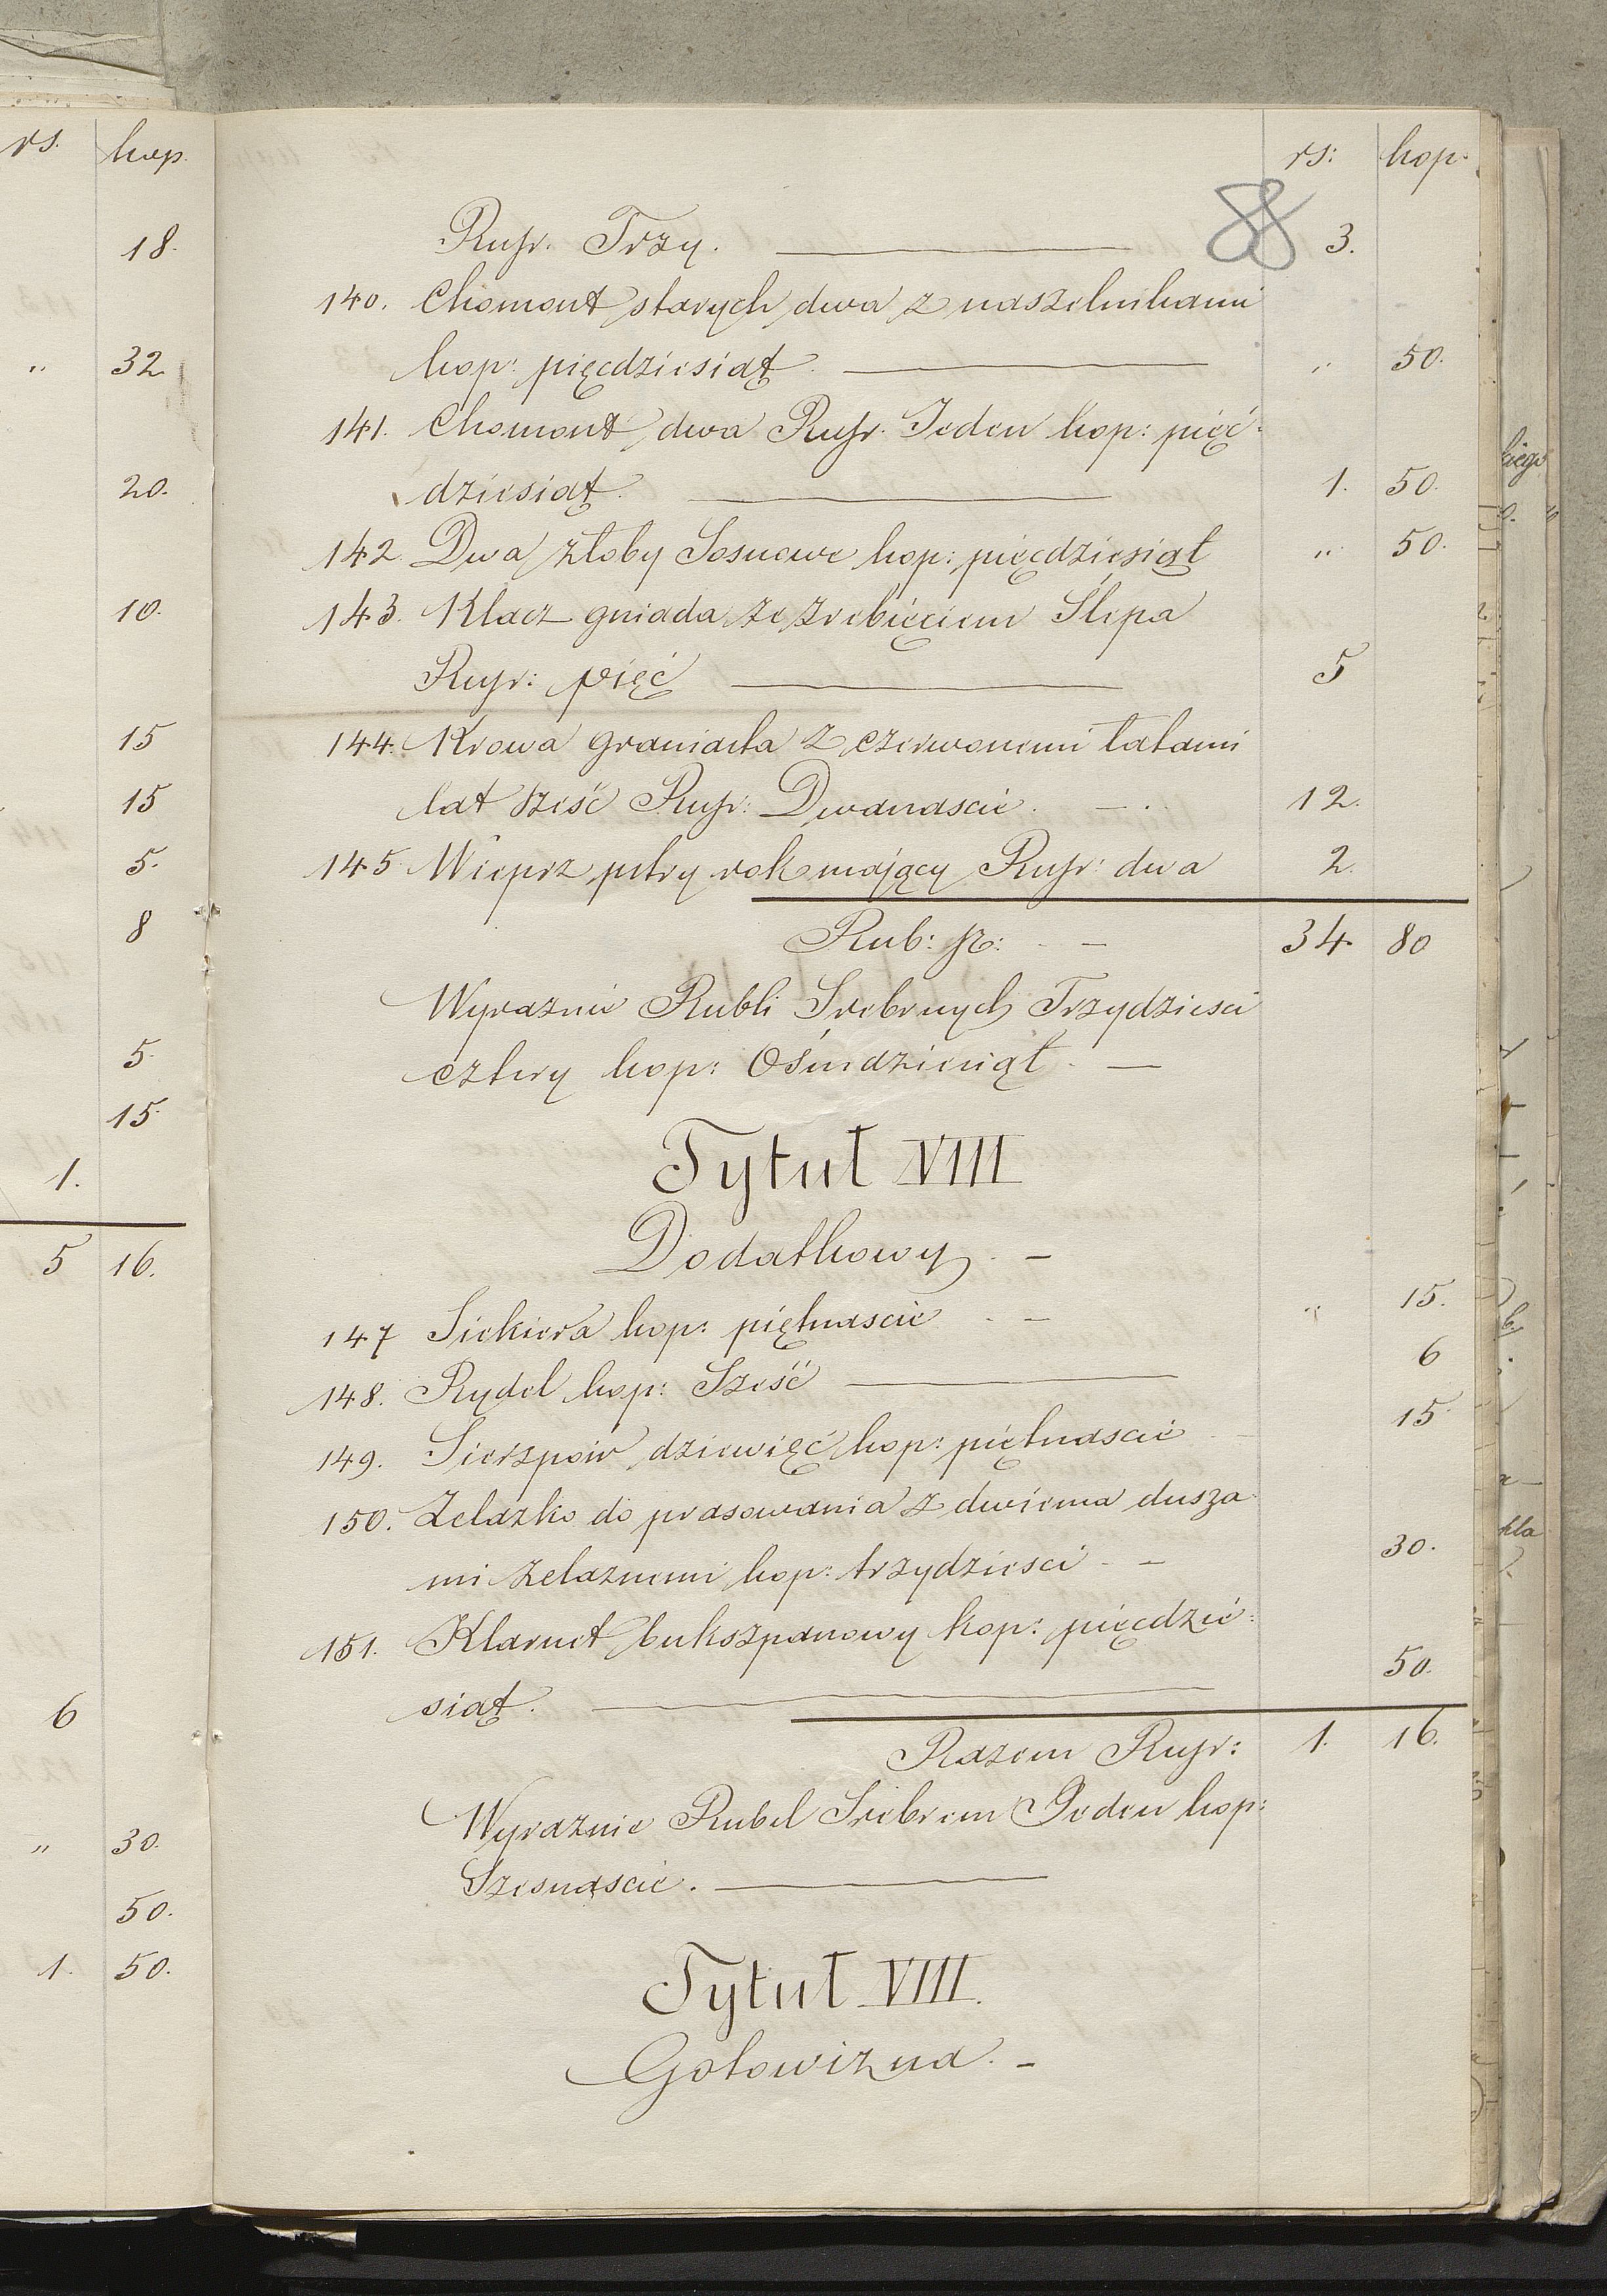 rs. kop.
18.
„ 32
20.
10.
15
15
5.
8
5
15.
1.
5 16.
6
„ 30.
50.
1. 50.
rs: kop.
88
Rusr. Trzy. 3.
140. Chomont starych dwa z naszelnikami
kop: pięcdziesiąt. „ 50.
141. Chomont dwa Rusr. Jeden kop: pięć-
dziesiąt. 1. 50.
142. Dwa żłoby Sosnowe kop: pięcdziesiąt „ 50.
143. Klacz gniada ze zrebięciem Ślepa
Rusr: pięć 5
144. Krowa graniasta z czerwonemi łatami
lat sześć Rusr: Dwanascie. 12.
145 Wieprz pstry rok mający Rusr: dwa 2.
Rub: sr: 34 80
Wyraznie Rubli Srebrnych Trzydziesci
cztery kop: Ośmdziesiąt. —
Tytuł VIII
Dodatkowy. —
147 Siekiera kop: piętnascie „ 15.
148. Rydel kop: Sześć 6
149. Sierzpów dziewięć kop: piętnascie 15
150. Zelazko do prasowania z dwiema dusza-
mi żelaznemi kop: trzydziesci 30.
151. Klarnet bukszpanowy kop: pięcdzie-
siąt. 50.
Razem Rusr: 1. 16.
Wyraznie Rubel Srebrem Jeden kop:
Szesnascie.
Tytuł VIII.
Gotowizna. —